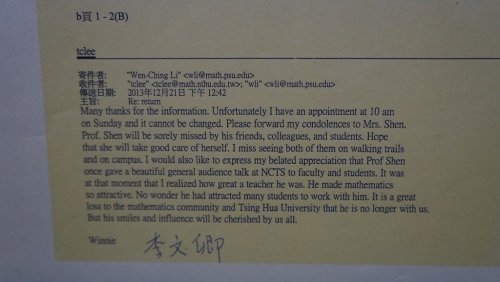 b頁 1 - 2(B)
tclee
寄件者: "Wen-Ching Li" <wli@math.psu.edu>
收件者: "tclee" <tclee@math.nthu.edu.tw>; "wli" <wli@math.psu.edu>
傳送日期: 2013年12月21日 下午 12:42
主旨: Re: return
Many thanks for the information. Unfortunately I have an appointment at 10 am
on Sunday and it cannot be changed. Please forward my condolences to Mrs. Shen.
Prof. Shen will be sorely missed by his friends, colleagues, and students. Hope
that she will take good care of herself. I miss seeing both of them on walking trails
and on campus. I would also like to express my belated appreciation that Prof Shen
once gave a beautiful general audience talk at NCTS to faculty and students. It was
at that moment that I realized how great a teacher he was. He made mathematics
so attractive. No wonder he had attracted many students to work with him. It is a great
loss to the mathematics community and Tsing Hua University that he is no longer with us.
But his smiles and influence will be cherished by us all.
Winnie 李文卿